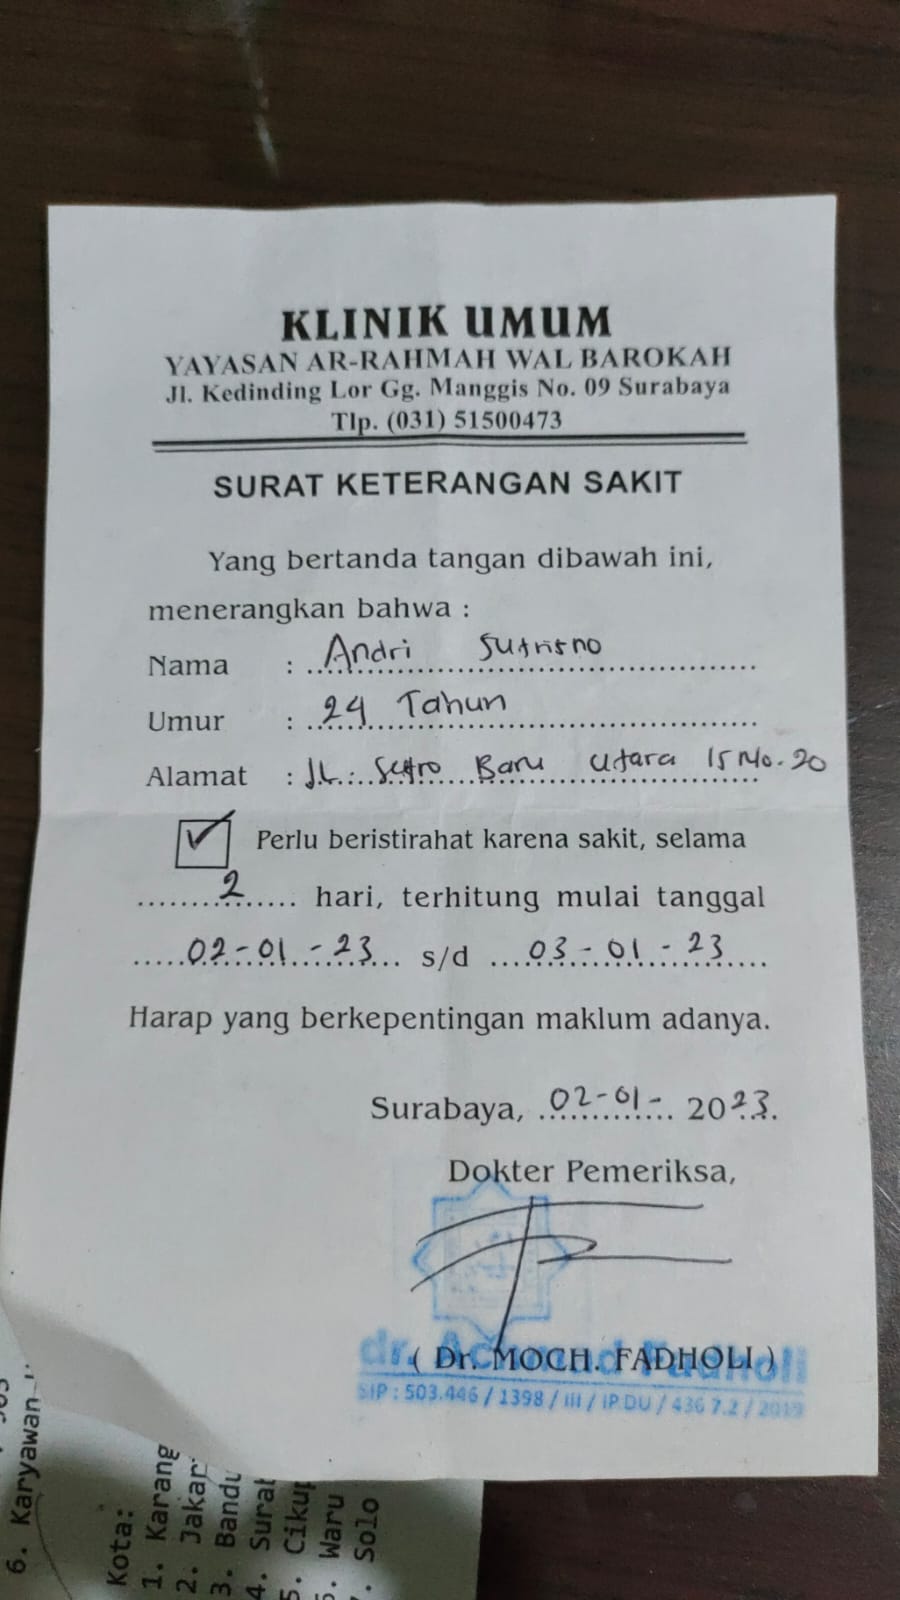 KLINIK UMUM
YAYASAN AR-RAHMAH WAL BAROKAH
Jl. Kedinding Lor Gg. Manggis No. 09 Surabaya
Tlp. (031) 51500473
SURAT KETERANGAN SAKIT
Yang bertanda tangan dibawah ini,
menerangkan bahwa :
Nama : Andri Sutrisno
Umur : 24 Tahun
Alamat : JL. Setro Baru Utara 15 No. 20
Perlu beristirahat karena sakit, selama
2 hari, terhitung mulai tanggal
02-01-23 s/d 03-01-23
Harap yang berkepentingan maklum adanya.
Surabaya, 02-01- 2023.
Dokter Pemeriksa,
( Dr. MOCH. FADHOLI )
dr. Fadholi
SIP : 503.446 / 1398 / III / IP.DU / 436 7.2 / 2019
6. Karyawan
Kota:
1. Karang
2. Jakar
3. Bandu
4. Surab
5. Cikup
6. Waru
7. Solo